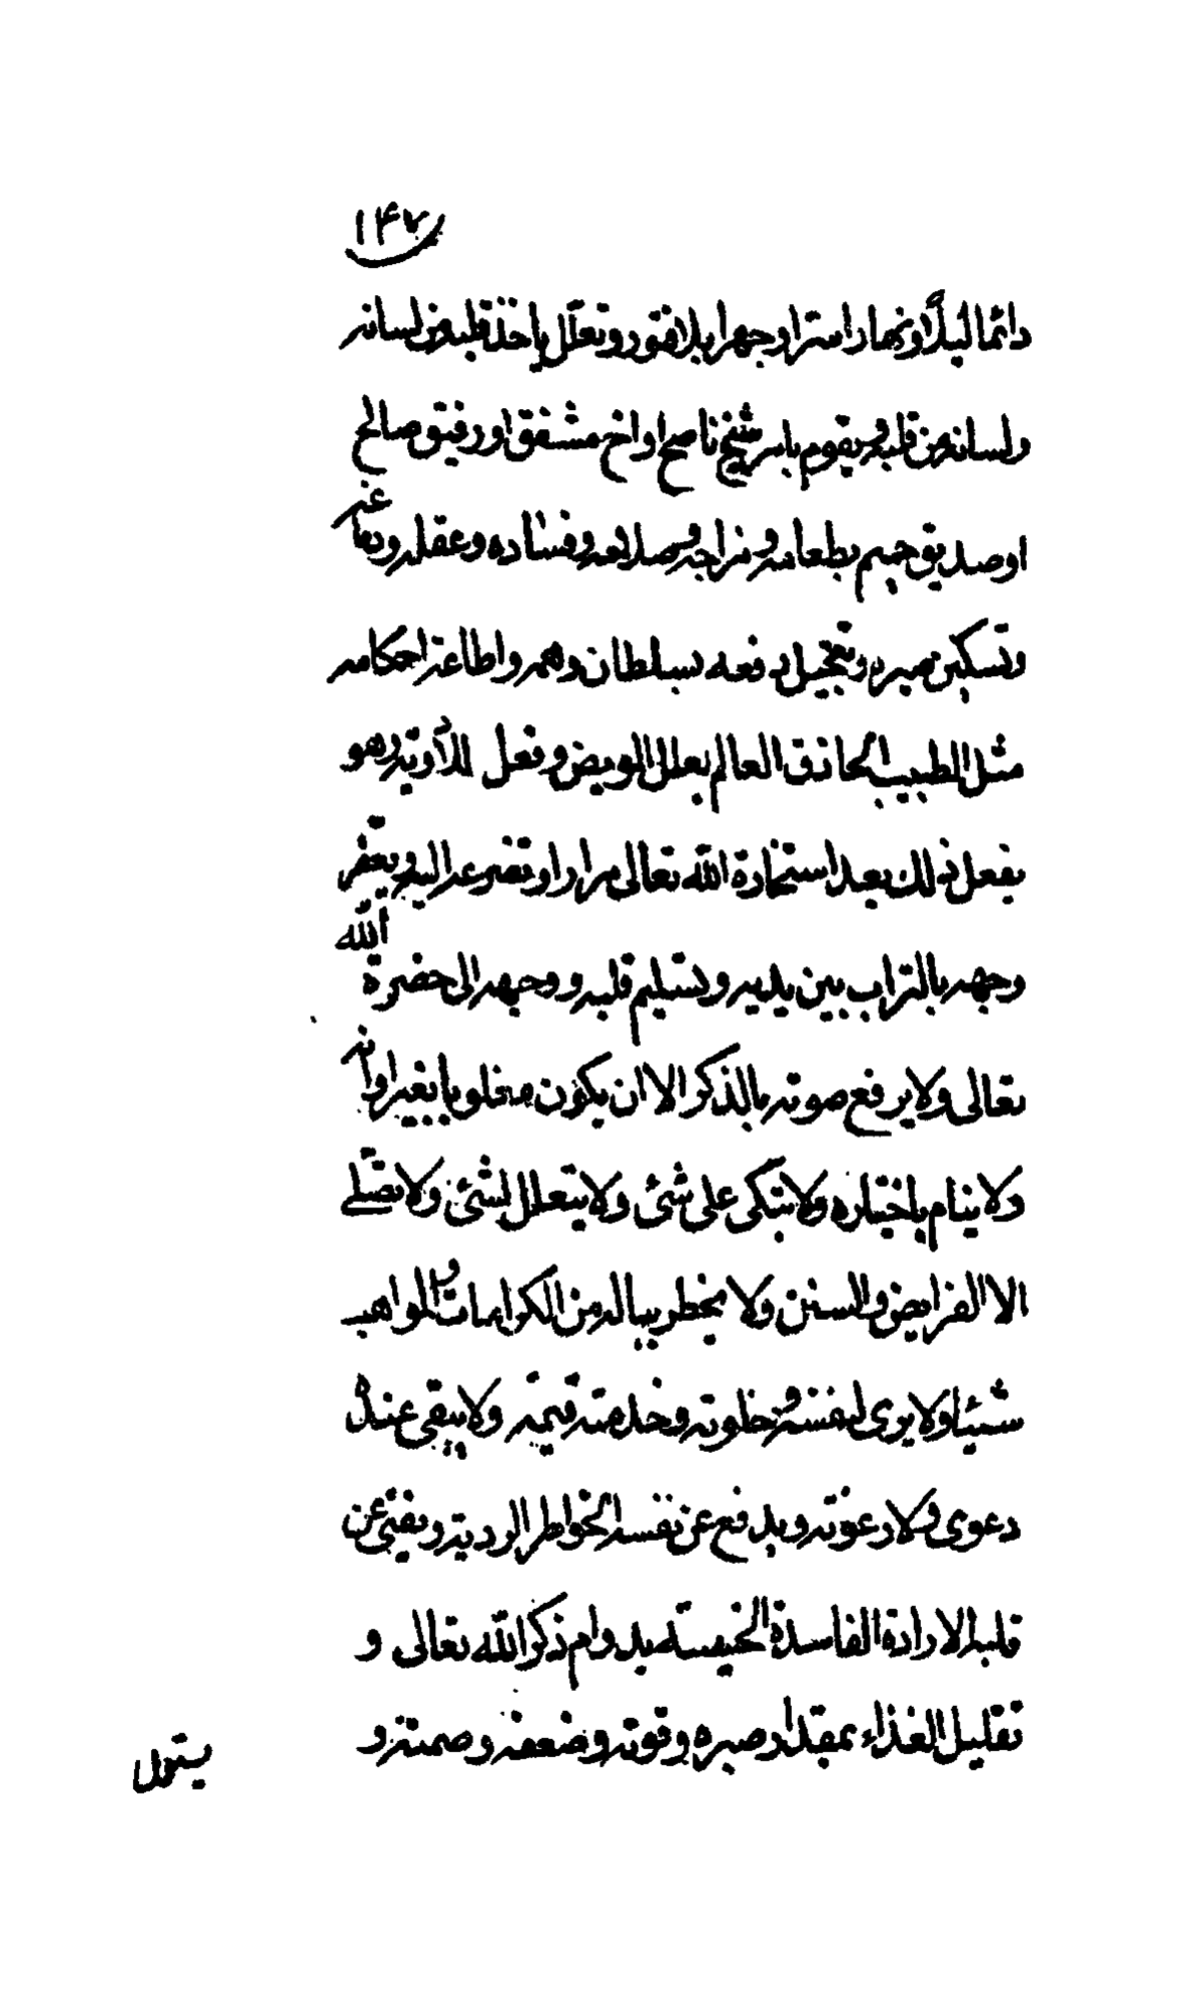 ۱۴۷
دائما ليلاً ونهارا سترا وجهرا بلا فتور وتعلّل يأخذ قلبه من لسانه
ولسانه من قلبه ويقوم بامر شيخ ناصح او اخ مشفق او رفيق صالح
او صديق حميم بطعامه ومزاجه وصلاحه وفساده وعقله ودماغه
وتسكين صبره وتعجيل دفعه سلطان وهمه واطاعة احكامه
مثل الطبيب الحاذق العالم بعلل المريض وفعل الادوية وهو
يفعل ذلك بعد استخارة الله تعالى مرارا وتضرعه اليه ويعفّر
وجهه بالتراب بين يديه وتسليم قلبه ووجهه الى حضرة الله
تعالى ولا يرفع صوته بالذكر الا ان يكون مغلوبا بغير اوانه
ولا ينام باختياره ولا يتكى على شئ ولا يتعلل بشئ ولا يصلّے
الا الفرايض والسنن ولا يخطر بباله من الكرامات والمواهب
شيئا ولا يرى لنفسه وخلوته وخدمته قيمة ولا يبقى عنده
دعوى ولا رعونة ويدفع عن نفسه الخواطر الردية وينفى عن
قلبه الارادة الفاسدة الخسيسة بدوام ذكر الله تعالى و
تقليل الغذاء بمقدار صبره وقوته وضعفه وصمته و